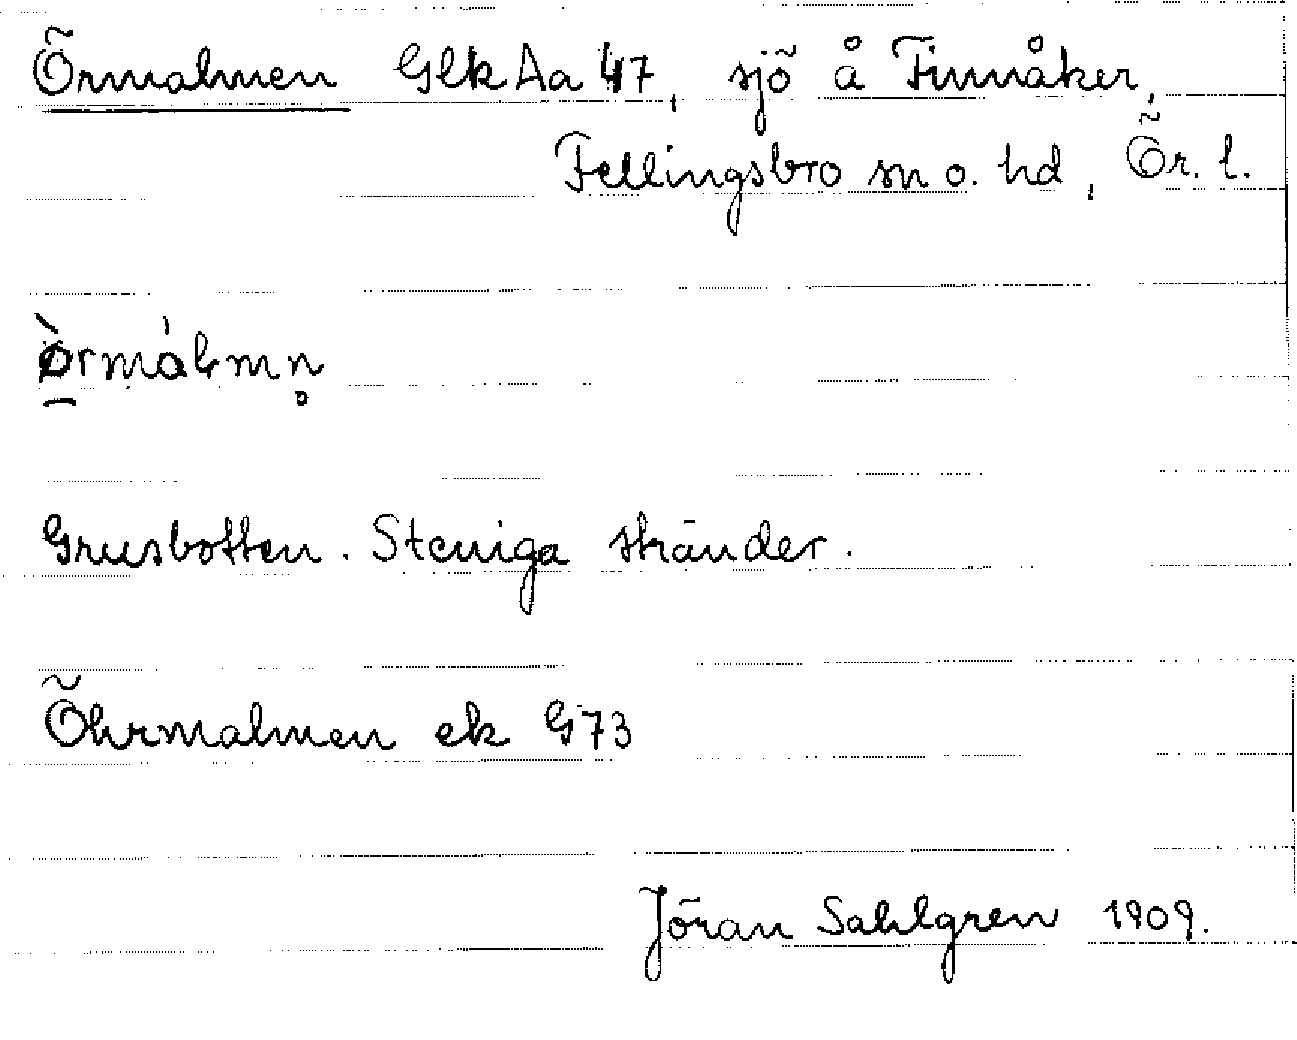 Örmalmen GlkAa 47, sjö å Finnåker,
Fellingsbro sn o. hd, Ör. l.
Grusbotten. Steniga stränder.
Öhrmalmen ek G73
Jöran Sahlgren 1909.